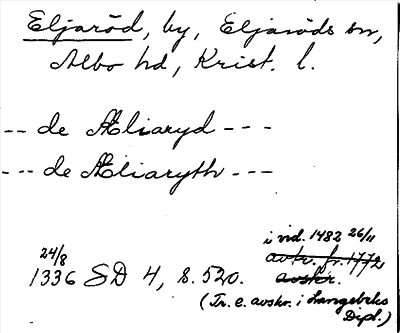 Eljaröd, by, Eljaröds sn,
Albo hd, Krist. l.
-- de Æliaryd ---
--- de Æliaryth ---
i vid. 1482 26/11
avskr. fr. 1772
24/8
1336 SD 4, s. 520. avskr.
(Tr. e. avskr. i Langebeks
Dipl.)